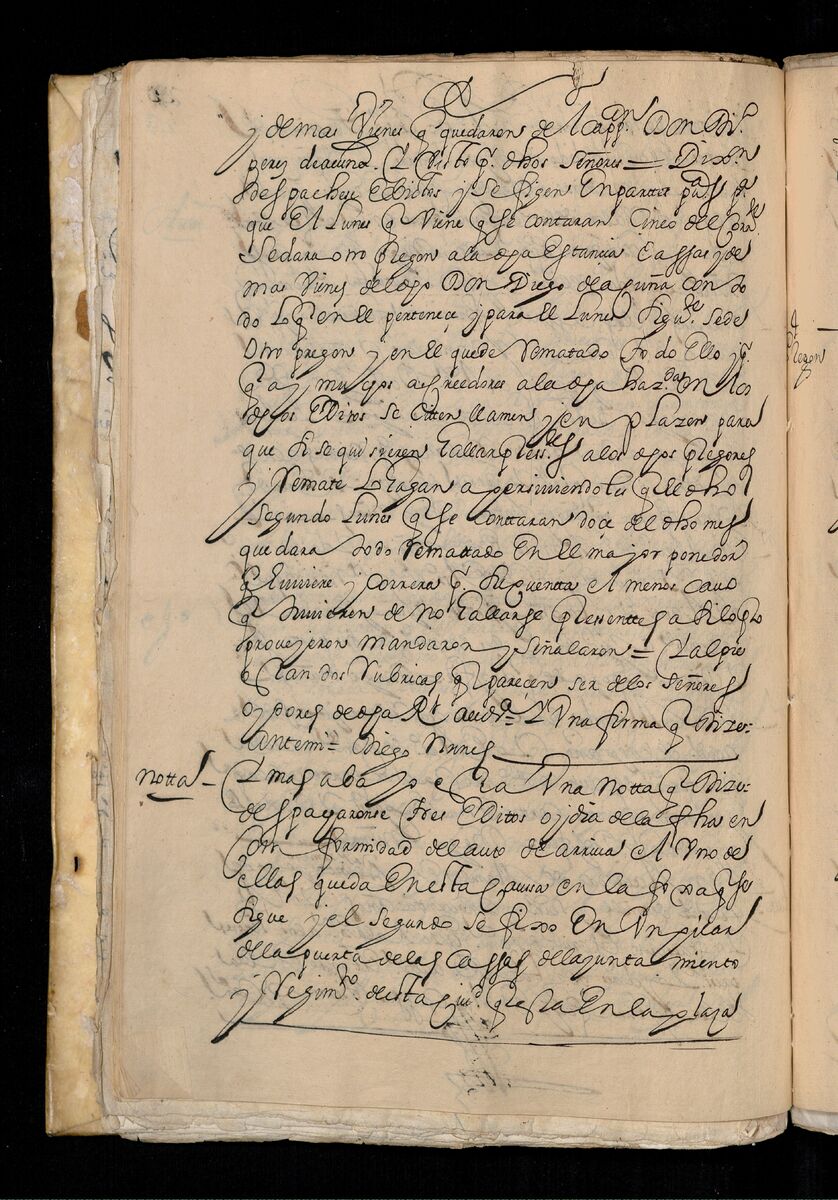 y demas Vienes q̃ quedaron del cappⁿ. Don Di.º
perez de acuña. Y Visto pr. dhos Señores = Dixn
despachese Edictos y se fixen En partes pas pa.
que El Lunes q̃ Viene q̃ se contaran Cinco del Corrte
Se dara otro pregon a la dha Estancia Cassas y de
mas Vienes del dho Don Diego de acuña con to
do Lo q̃ en el perteneçe y para El Lunes sigute se de
Otro pregon y en el quede Rematado todo Ello y pr.
q̃ ay muchos acreedores a la dha hazda En los
dhos Editos se Citen llamen y en plazen para
que si se quisieren hallar pressentes a los dhos pregones
y Remate Lo hagan aperciviendoles q̃ el dho
Segundo Lunes q̃ se Conttaran doçe del dho mes
quedara todo Remattado En el mayor ponedor
q̃ huviere y correra pr. su quentta El menos cavo
q̃ tuvieren de no hallarse pressenttes y a si lo
proveyeron mandaron y señalaron = Y al pie
estan dos Rubricas q̃ parecen ser de los Señores
oydores de dha Rl audiª. Y Una firma q̃ Dize.
Ante mi = Diego Nunes
notta – Y mas abajo esta Una notta q̃ Dize.
despacharonse tres Editos oy dia de la fha en
Conformidad del auto de arriva El Uno de
ellos queda En esta Caussa en la foxa q̃ se
sigue y el segundo se fixo En Un pilar
de la puerta de las Cassas del ayuntamiento
y Regimto. de esta Ciud. q̃ esta En la plaza
pregon